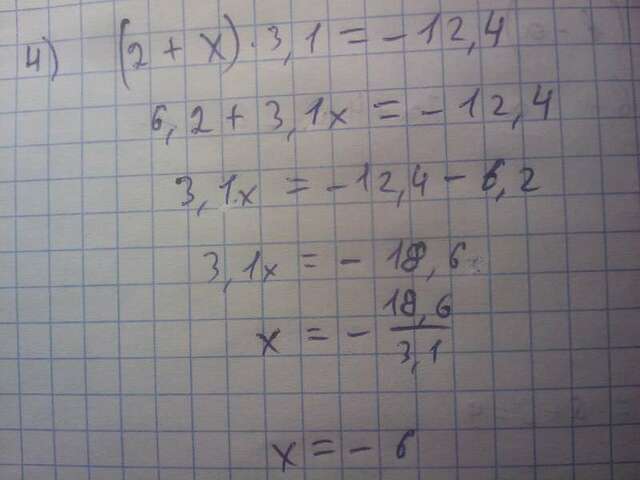 4) (2 + x) · 3,1 = - 12,4
6,2 + 3,1x = - 12,4
3,1x = - 12,4 - 6,2
3,1x = - 18,6
x = - 18,6/3,1
x = - 6